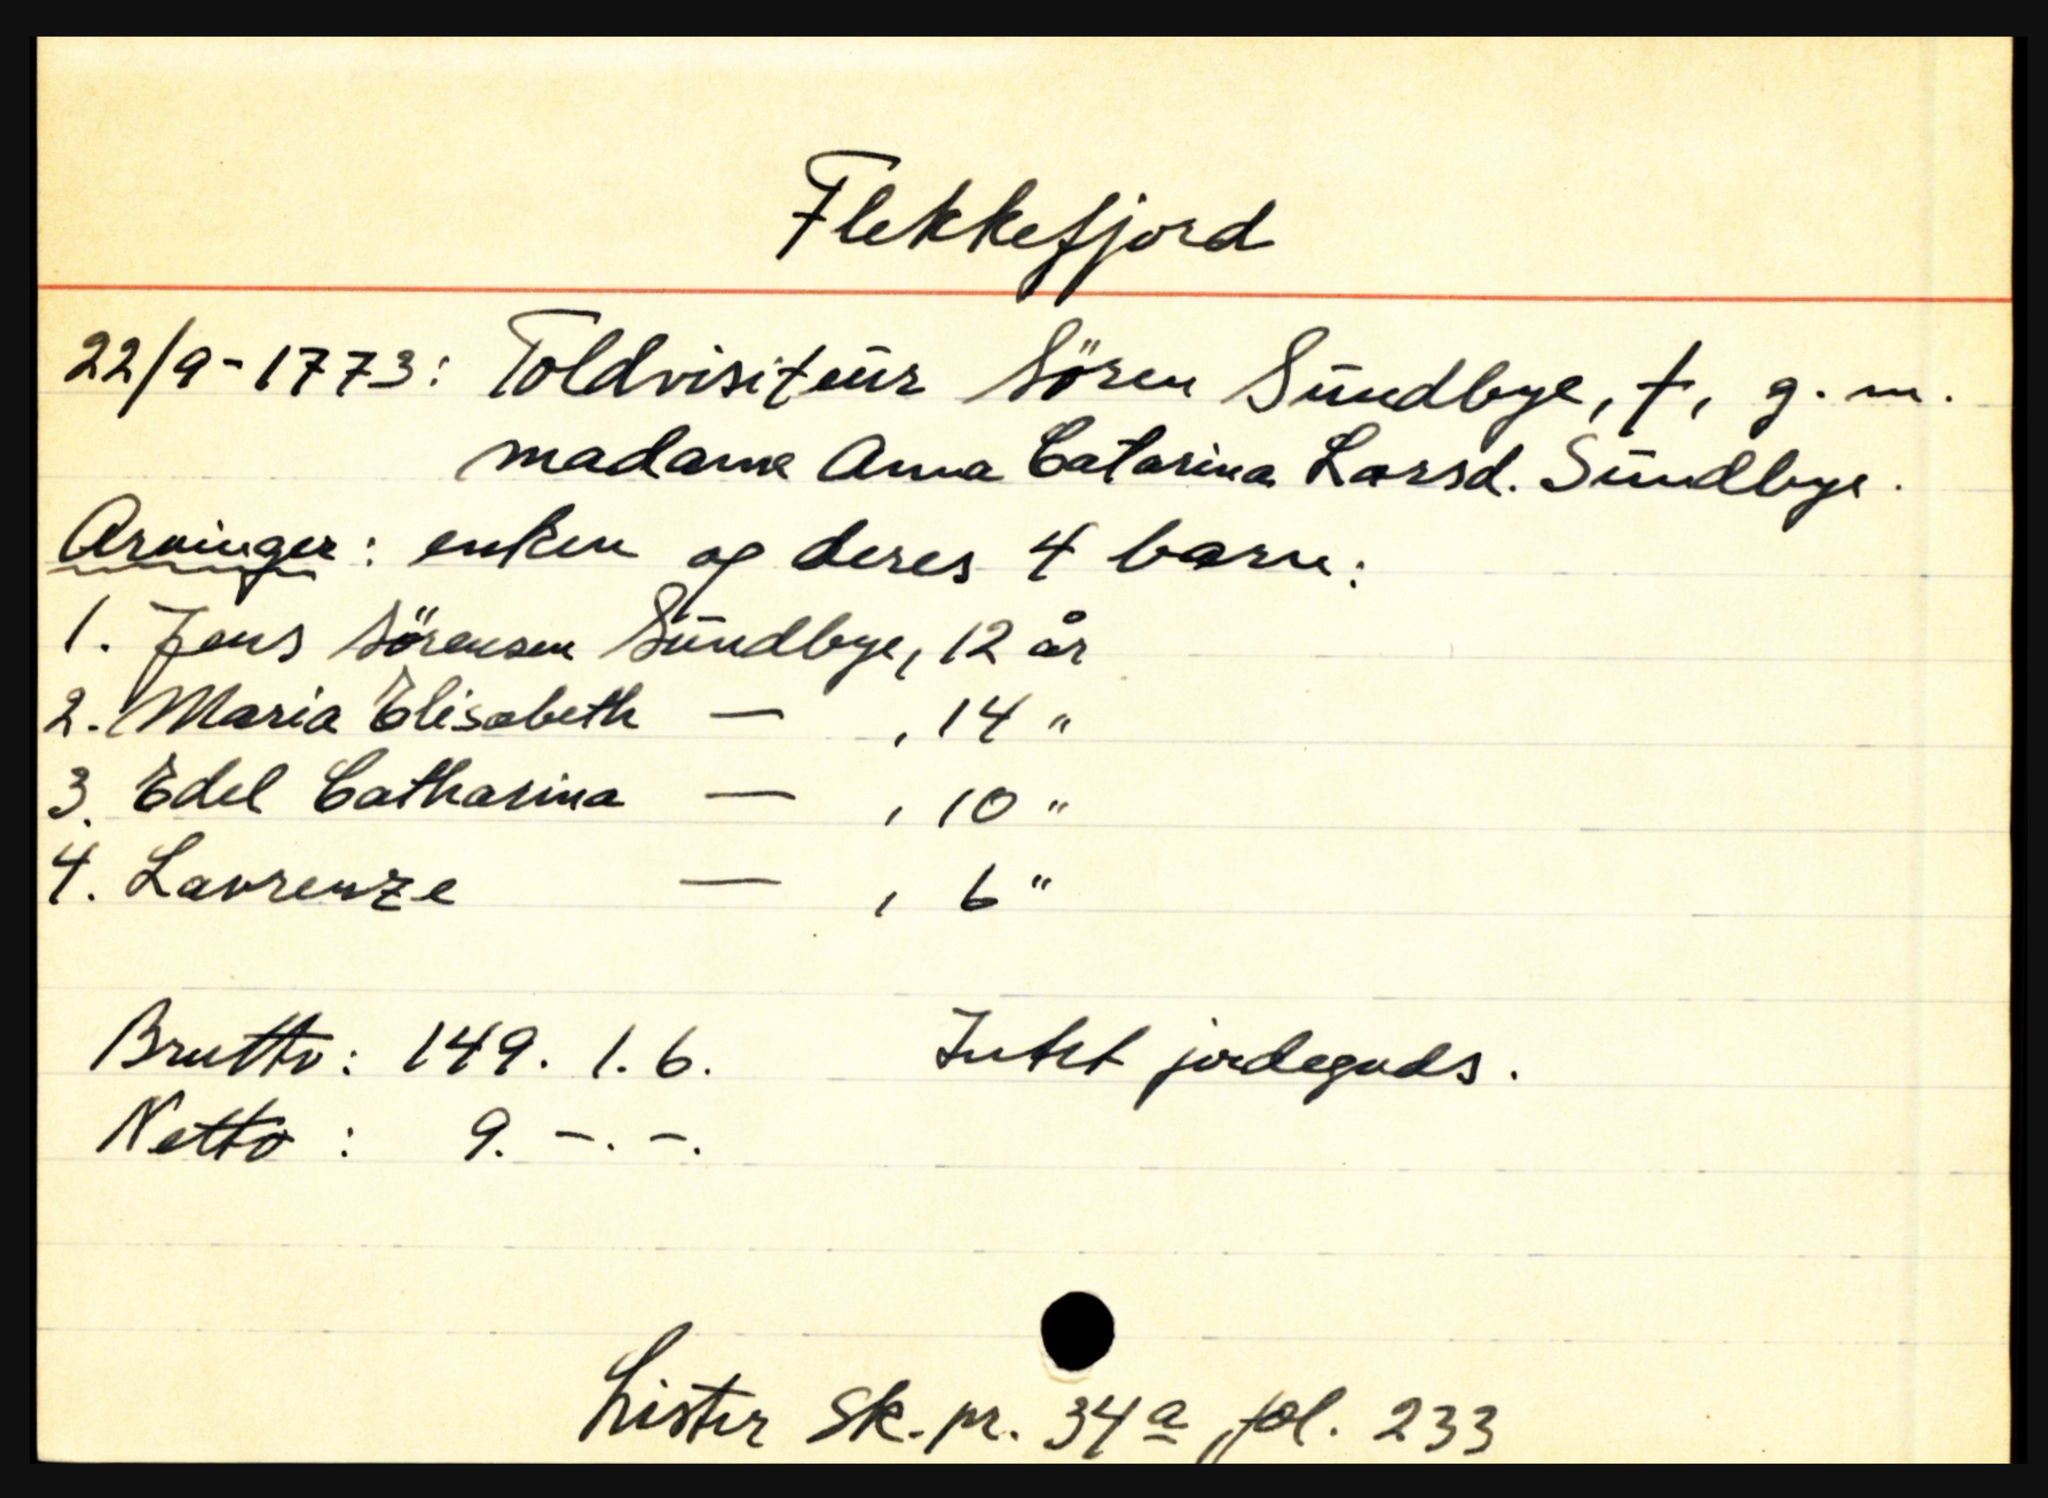 Flekkefjord
22/9-1773: Toldvisiteur Sören Sundbye, †, g. m.
madame Anna Catarina Larsd. Sundbye.
Arvinger: enken og deres 4 barn:
1. Jens Sörensen Sundbye, 12 år
2. Maria Elisabeth — , 14 "
3. Edel Catharina — , 10 "
4. Lavrenze — , 6 "
Brutto: 149. 1. 6. Intet jordegods.
Netto: 9. -. -.
Lister sk.pr. 34a, fol. 233